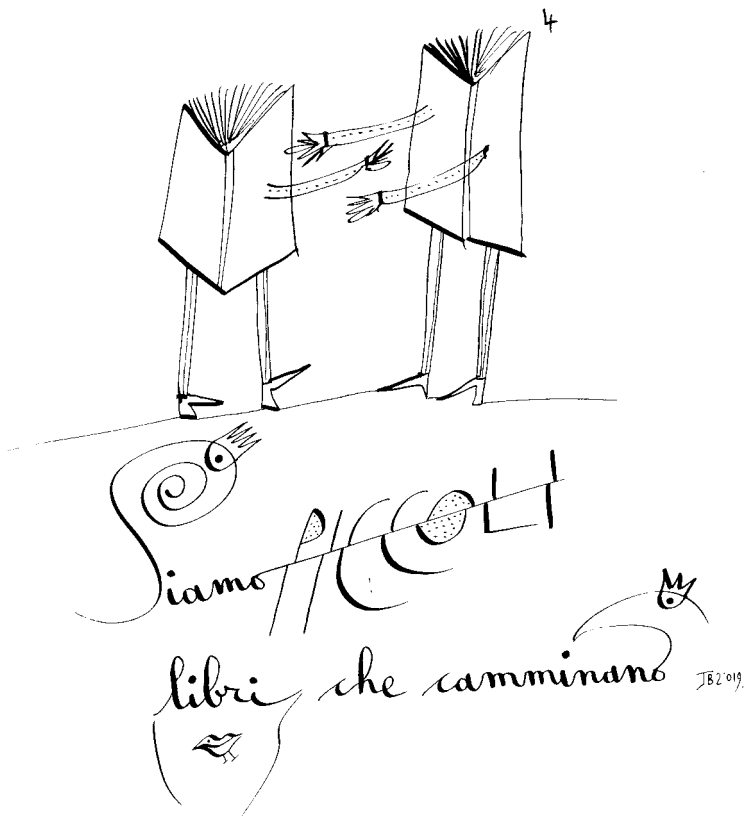 4
Siamo PICCOLI
libri che camminano
JB2'019.